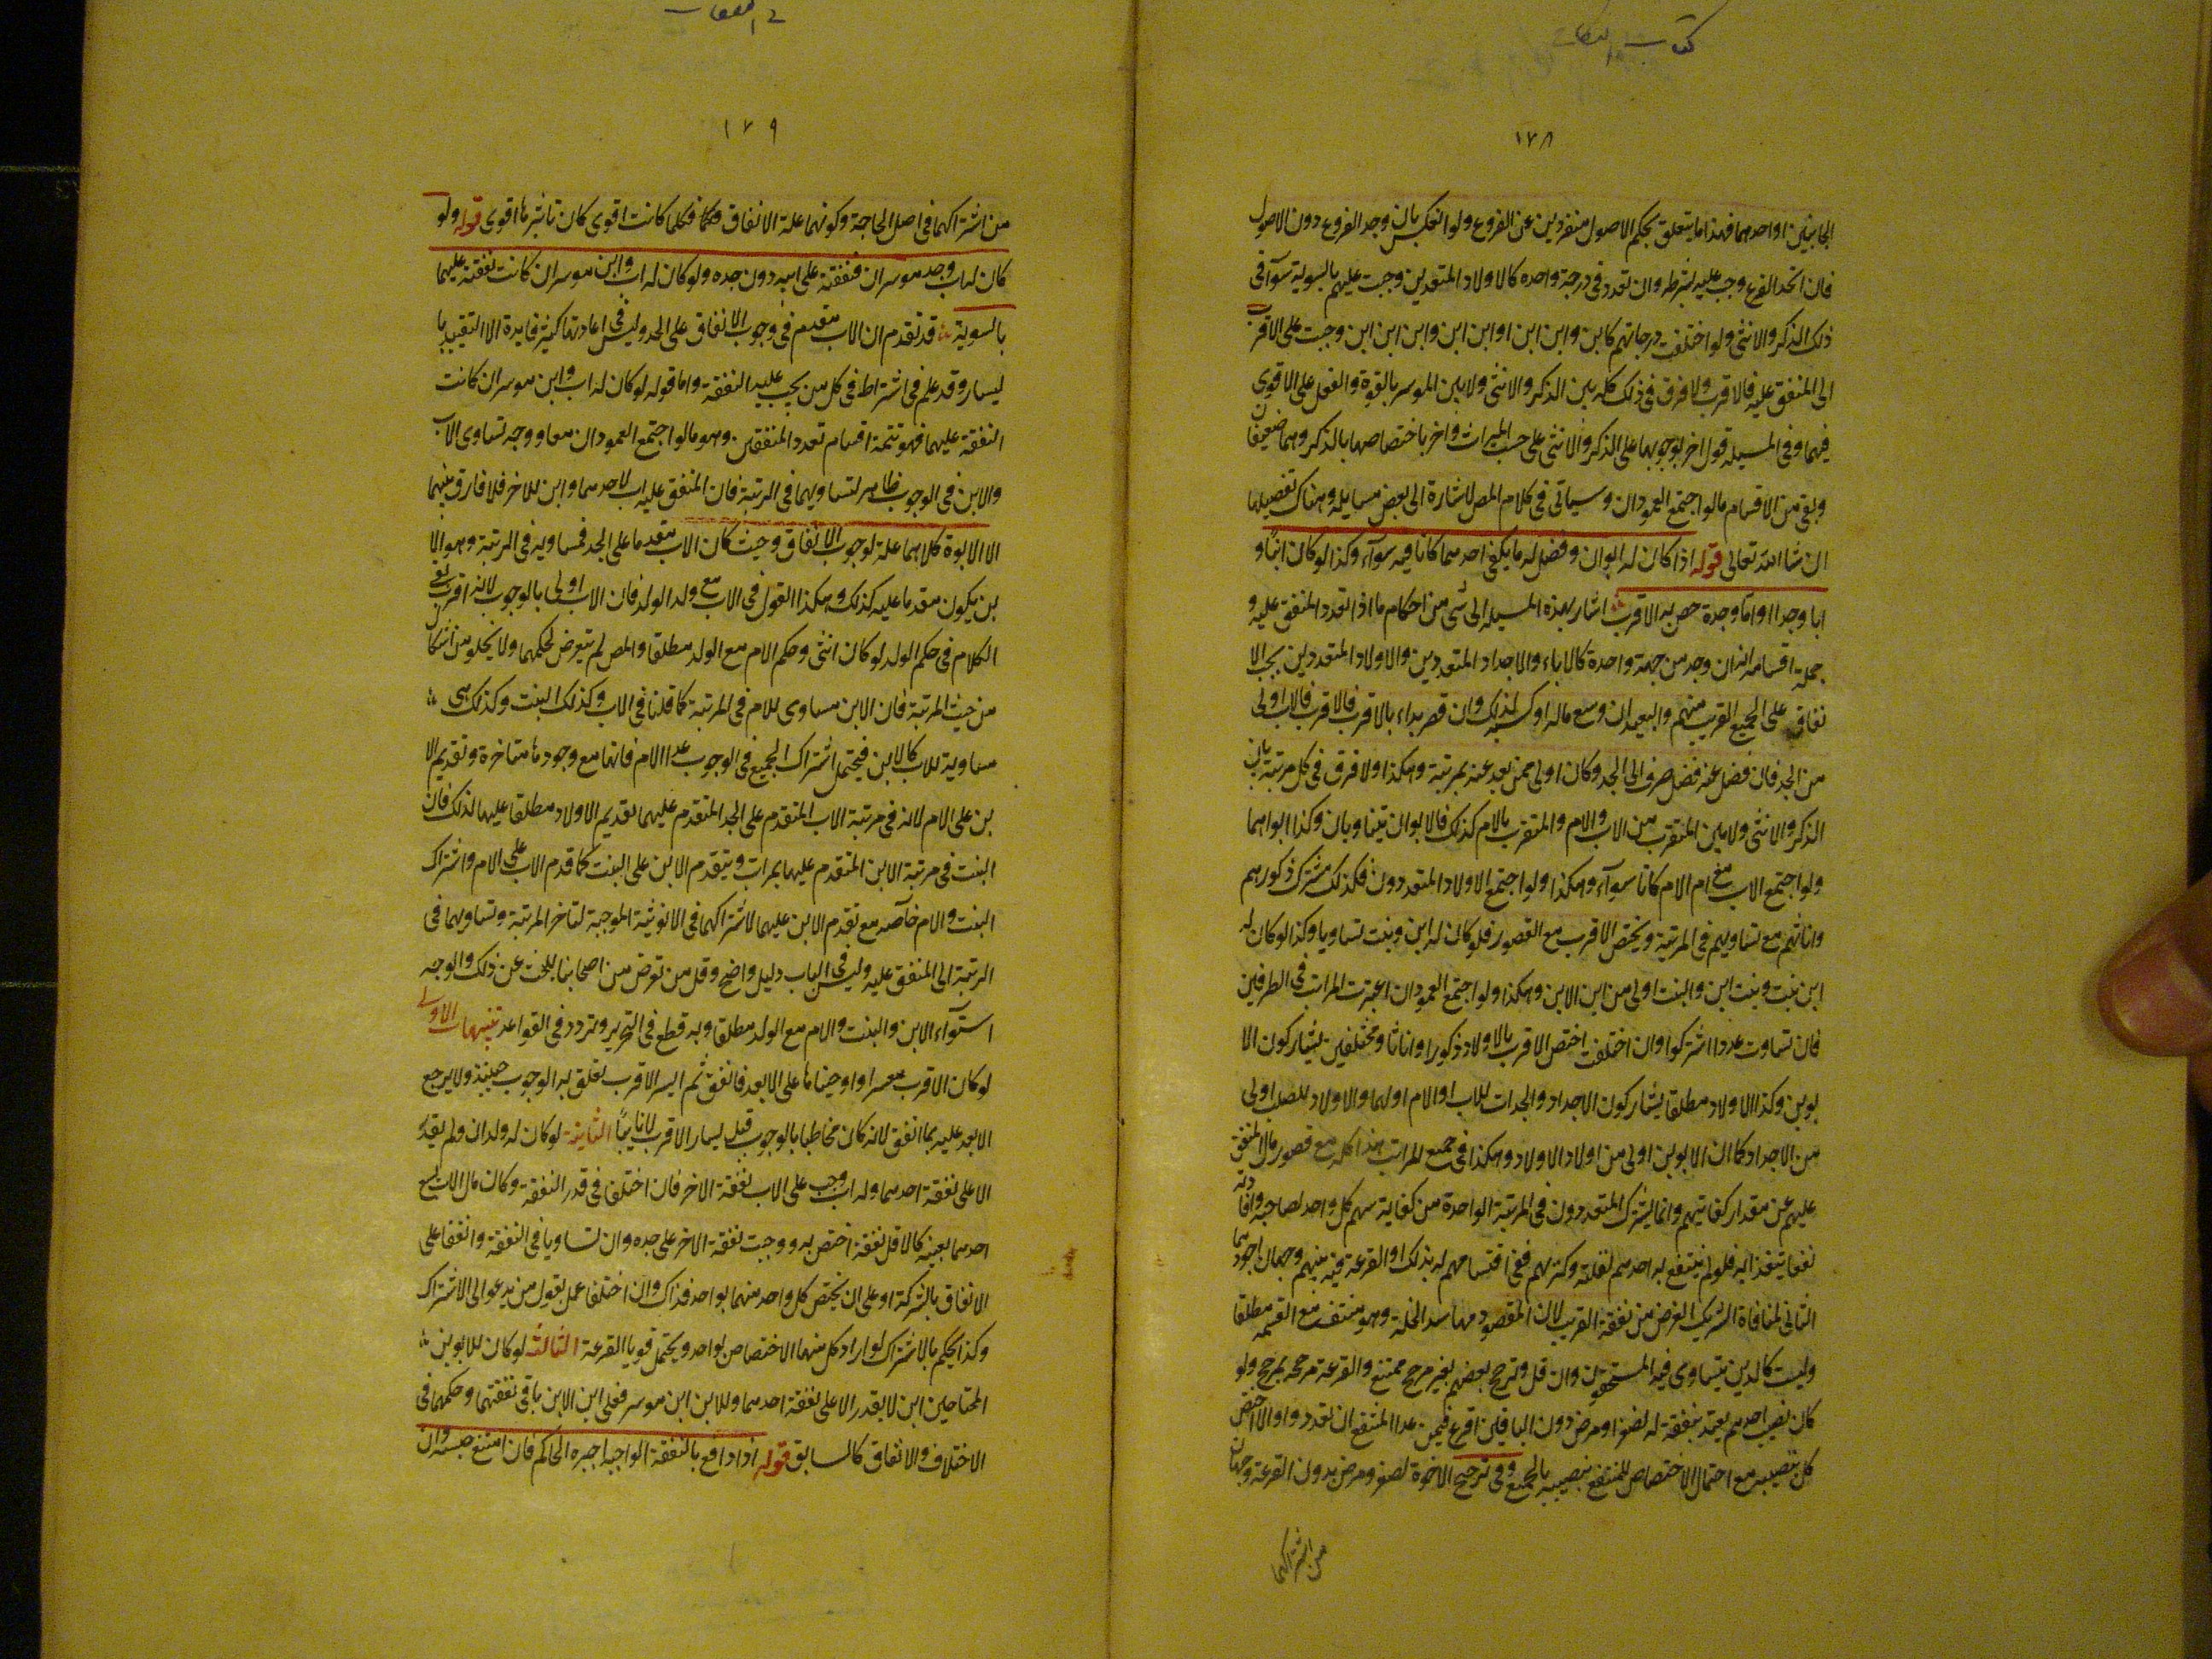 كتاب النكاح
١٧٨
الجانبين او احدهما فهذا ما يتعلق بحكم الاصول منفردين عن الفروع ولو انعكس بان وجد الفروع دون الاصول
فان اتحد الفرع وجب عليه بشرطه وان تعدد في درجة واحده كالاولاد المتعددين وجبت عليهم بالسوية سوآ في
ذلك الذكر والانثى ولو اختلفت درجاتهم كابن وابن ابن او ابن ابن وابن ابن ابن وجبت على الاقرب
الى المنفق عليه فالاقرب ولا فرق في ذلك كله بين الذكر والانثى ولا بين الموسر بالقوة والفعل على الاقوى
فيهما وفي المسيله قول اخر بوجوبها على الذكر والانثى على حسب الميراث واخر باختصاصها بالذكر وهما ضعيفان
وبقى من الاقسام ما لو اجتمع العمودان وسياتى في كلام المص الاشارة الى بعض مسايله وهناك تفصيلها
ان شا الله تعالى قوله اذا كان له ابوان وفضل له ما يكفى احدهما كانا فيه سوآء وكذا لو كان ابنا و
ابا وجدا او اما وجدة خص به الاقرب اشار بهذه المسيله الى شى من احكام ما اذا تعدد المنفق عليه و
جملة اقسامه انه ان وجد من جهة واحدة كالاباء والاجداد المتعددين والاولاد المتعددين يجب الا
نفاق على الجميع القريب منهم والبعيد ان وسع ماله او كسبه لذلك وان قصر بداء بالاقرب فالاقرب فالاب اولى
من الجد فان فضل عنه فضل صرف الى الجد وكان اولى ممن بعد عنه بمرتبة وهكذا ولا فرق في كل مرتبة بين
الذكر والانثى ولا بين المتقرب من الاب والام والمتقرب بالام كذلك فالابوان يتساويان وكذا ابواهما
ولو اجتمع الاب مع ام الام كانا سوآء وهكذا ولو اجتمع الاولاد المتعددون فكذلك مشترك ذكورهم
واناثهم مع تساويهم في المرتبة ويختص الاقرب مع القصور فلو كان له ابن وبنت تساويا وكذا لو كان له
ابن بنت وبنت ابن والبنت اولى من ابن الابن وهكذا ولو اجتمع العمودان اعتبرت المراتب في الطرفين
فان تساوت عددا اشتركوا وان اختلفت اختص الاقرب بالاولاد ذكورا واناثا ومختلفين يشاركون الا
بوين وكذا الاولاد مطلقا يشاركون الاجداد والجدات للاب او الام او لهما والاولاد للصلب اولى
من الاجداد كما ان الابوين اولى من اولاد الاولاد وهكذا في جميع المراتب هذا كله مع قصور مال المنفق
عليهم عن مقدار كفايتهم وانما يشترك المتعددون في المرتبة الواحدة من كفاية سهم كل واحد لصاحبه وافادته
نفعا يعتد به فلو لم ينتفع به احدهم لقلته وكثرتهم ففي اقتسامهم له بذلك او القرعة فيه بينهم وجهان اجودهما
الثاني لمنافاة التشريك الغرض من نفقة القريب لان المقصود منها سد الخلة وهو منتف مع القسمه مطلقا
وليست كالدين يتساوى فيه المستحقون وان قل وترجيح بعضهم بغير مرجح ممتنع والقرعة مرجحه بمرجح ولو
كان نصيب احدهم يعتد بنفقة له لصغر او مرض دون الباقين اقرع فيمن عدا المنتفع ان تعددوا والا اختص
كل بنصيبه مع احتمال الاختصاص للمنتفع بنصيبه بالجميع وفي ترجيح الاخوة لصغر ومرض بدون القرعة وجهان
من اشتراكهما
في النفقات
١٧٩
من اشتراكهما في اصل الحاجة وكونهما علة الانفاق فكلما كانت اقوى كان تاثيرها اقوى قوله ولو
كان له اب وجد موسران فنفقته على ابيه دون جده ولو كان له اب وابن موسران كانت نفقته عليهما
بالسوية قد تقدم ان الاب مقدم في وجوب الانفاق على الجد وليس في اعادتها كميز فايدة الا التقييد با
ليسار وقد علم في اشتراط في كل من يجب عليه النفقة واما قوله لو كان له اب وابن موسران كانت
النفقة عليهما فهو تتمة اقسام تعدد المنفقين وهو ما لو اجتمع العمودان معا ووجه تساوى الاب
والابن في الوجوب ظاهر لتساويهما في الرتبة فان المنفق عليه اب لاحدهما وابن للاخر فلا فارق بينهما
الا الابوة كلاهما علة لوجوب الانفاق وحيث كان الاب مقدما على الجد فمساويه في الرتبة وهو الا
بن يكون مقدما عليه كذلك وهكذا القول في الاب مع ولد الولد فان الاب اولى بالوجوب لانه اقرب بقى
الكلام في حكم الولد لو كان انثى وحكم الام مع الولد مطلقا والمص لم يتعرض لحكمهما ولا يخلو من اشكال
من حيث المرتبة فان الابن مساوى للام في المرتبة كما قلنا في الاب وكذلك البنت وكذلك هى
مساوية للاب كالابن فيحتمل اشتراك الجميع في الوجوب عدا الام فانها مع وجودها متاخرة وتقديم الا
بن على الام لانه في مرتبة الاب المتقدم على الجد المتقدم عليهما تقديم الاولاد مطلقا عليها لذلك فان
البنت في مرتبة الابن المتقدم عليها بمراتب وتقدم الابن على البنت كما قدم الاب على الام واشتراك
البنت والام خاصه مع تقدم الابن عليهما لاشتراكهما في الانوثية الموجبة لتاخر المرتبة وتساويهما في
الرتبة الى المنفق عليه وليس في الباب دليل واضح وقل من تعرض من اصحابنا للبحث عن ذلك والوجه
استوآء الابن والبنت والام مع الولد مطلقا وبه قطع في التحرير وتردد في القواعد تنبيهات الاولى
لو كان الاقرب معسرا واوجبناها على الابعد فانفق ثم ايسر الاقرب تعلق به الوجوب حينئذ ولا يرجع
الابعد عليه بما انفق لانه كان مخاطبا بالوجوب قبل يسار الاقرب لا نايبا الثانية لو كان له ولدان ولم يقدر
الا على نفقة احدهما وله اب وجب على الاب نفقة الاخر فان اختلف في قدر النفقة وكان مال الاب يسع
احدهما بعينه كالاقل نفقة اختص به ووجبت نفقة الاخر على جده وان تساويا في النفقة واتفقا على
الانفاق بالشركة او على ان يختص كل واحد منهما بواحد فذاك وان اختلفا عمل بقول من يدعو الى الاشتراك
وكذا يحكم بالاشتراك لو اراد كل منهما الاختصاص بواحد ويحتمل قويا القرعة الثالثة لو كان للابوين
المحتاجين ابن لا يقدر الا على نفقة احدهما وللابن ابن موسر فعلى ابن الابن باقى نفقتهما وحكمهما في
الاختلاف والاتفاق كالسابق قوله اذا دافع بالنفقة الواجبه اجبره الحاكم فان امتنع حبسه وان